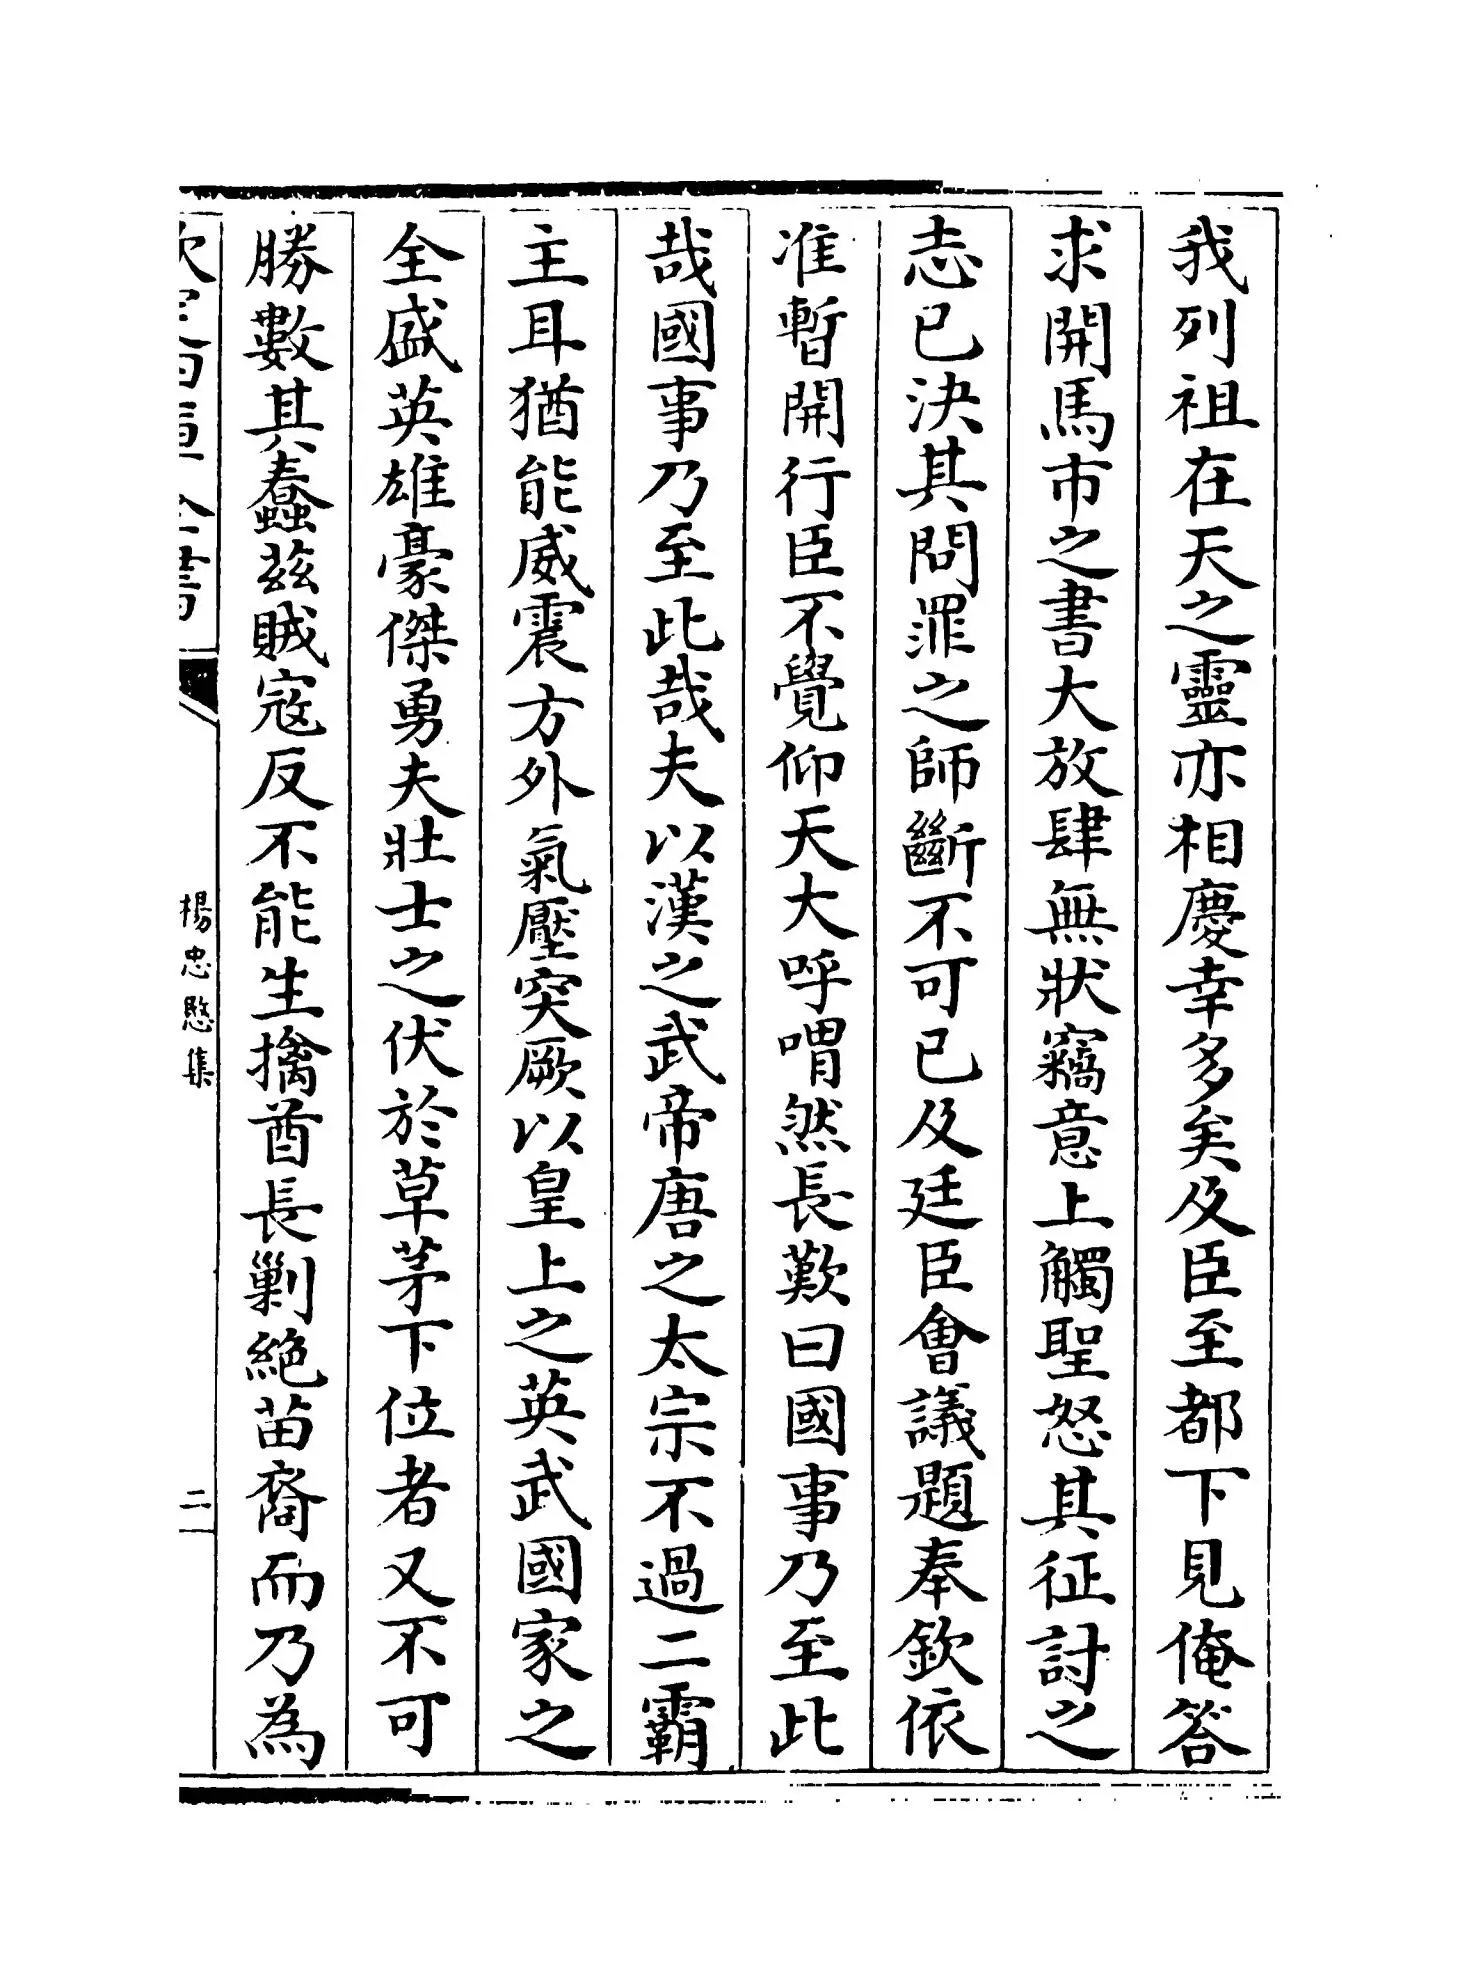 我列祖在天之靈亦相慶幸多矣及臣至都下見俺答
求開馬市之書大放肆無狀竊意上觸聖怒其征討之
志已決其問罪之師斷不可已及廷臣會議題奉欽依
准暫開行臣不覺仰天大呼喟然長歎曰國事乃至此
哉國事乃至此哉夫以漢之武帝唐之太宗不過二霸
主耳猶能威震方外氣壓突厥以皇上之英武國家之
全盛英雄豪傑勇夫壯士之伏於草茅下位者又不可
勝數其蠢茲賊寇反不能生擒酋長剿絶苗裔而乃為
楊忠愍集
二